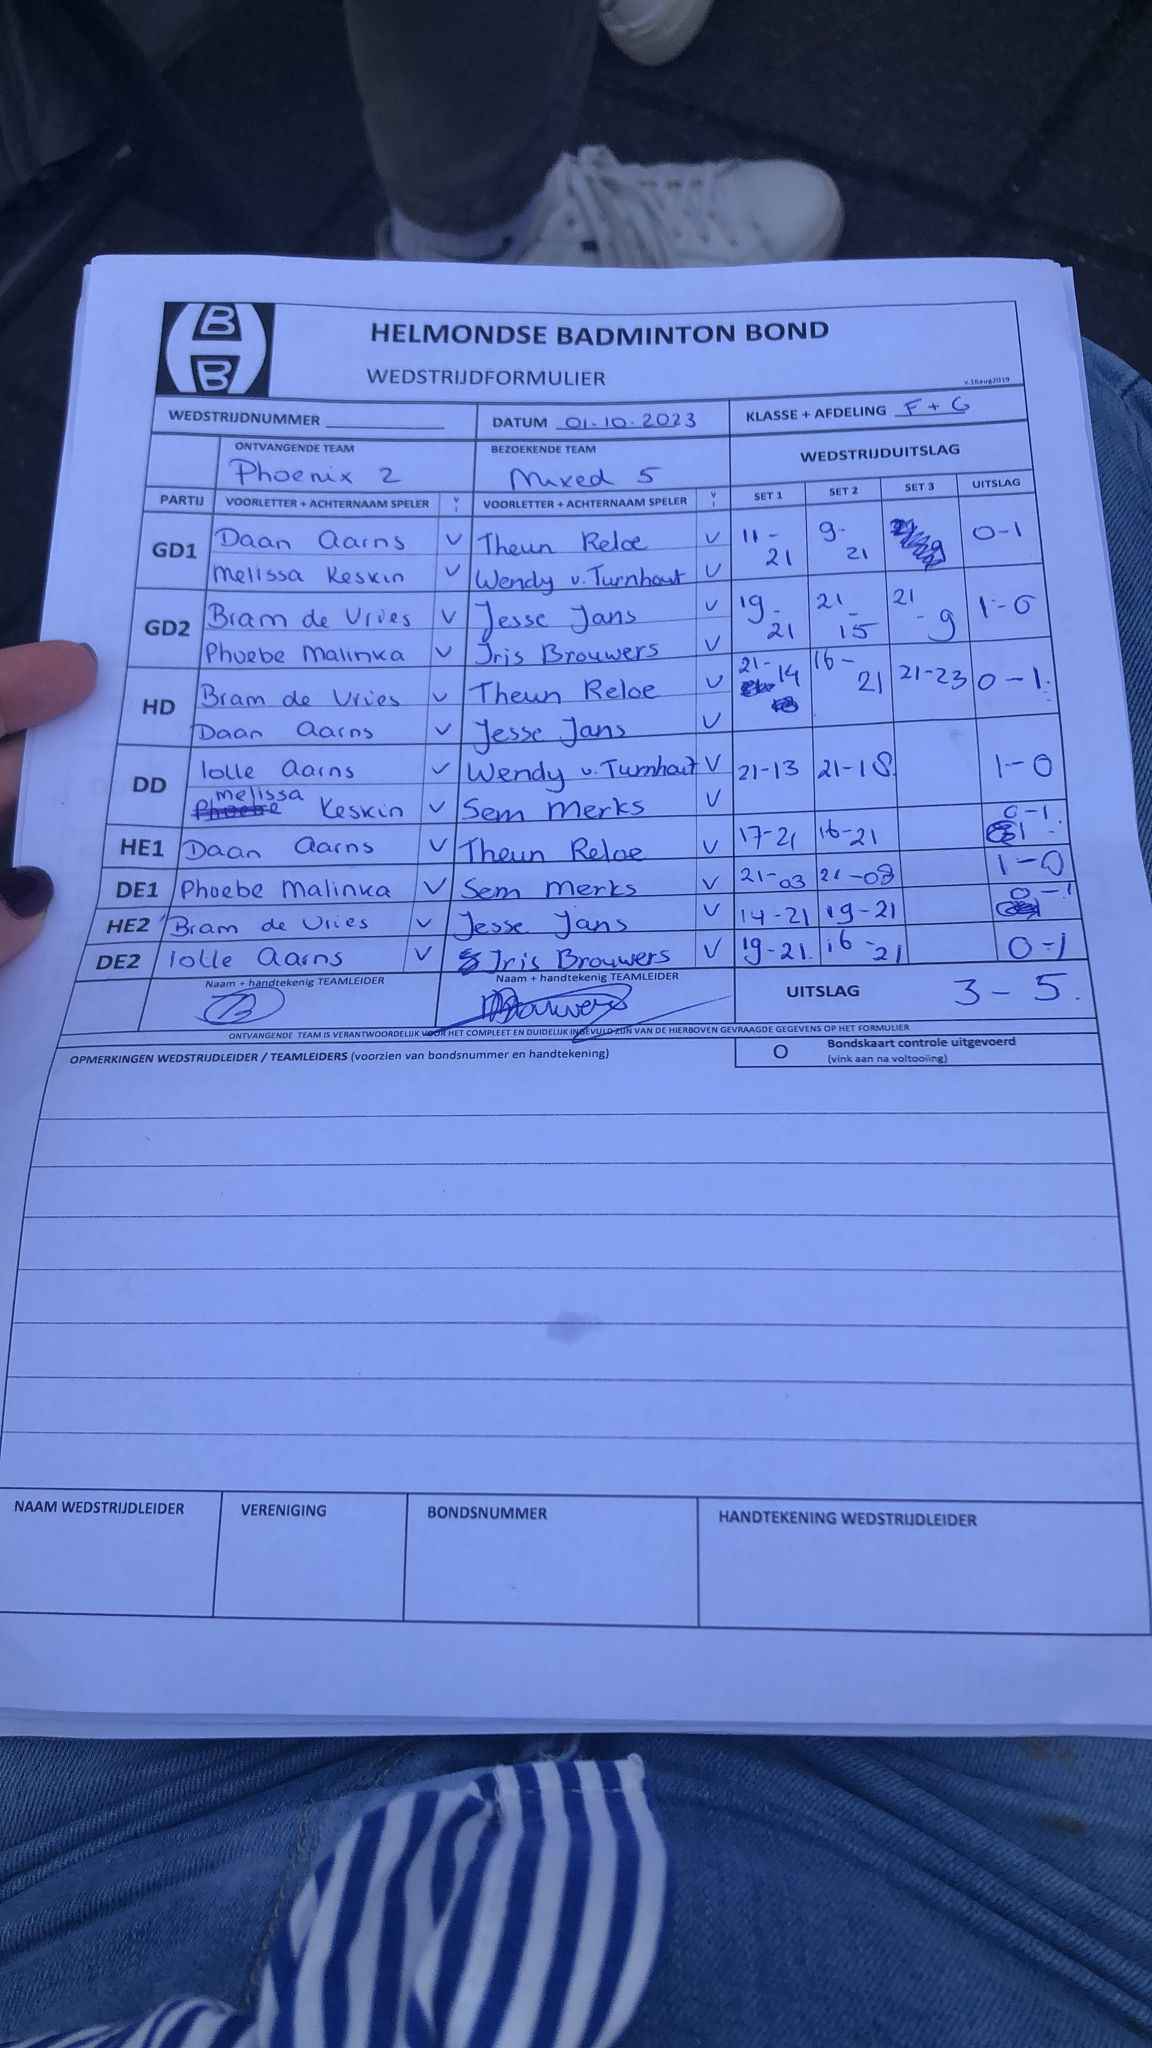 B
B
HELMONDSE BADMINTON BOND
WEDSTRIJDFORMULIER
v.16aug2019
WEDSTRIJDNUMMER
DATUM 01-10-2023
KLASSE + AFDELING F + G
ONTVANGENDE TEAM
Phoenix 2
BEZOEKENDE TEAM
Mixed 5
WEDSTRIJDUITSLAG
PARTIJ VOORLETTER + ACHTERNAAM SPELER V VOORLETTER + ACHTERNAAM SPELER V SET 1 SET 2 SET 3 UITSLAG
GD1 Daan Aarns V Theun Reloe V 11-21 9-21 0-1
Melissa Keskin V Wendy v. Turnhout V
GD2 Bram de Vries V Jesse Jans V 19-21 21-15 21-9 1-0
Phoebe Malinka V Iris Brouwers V
HD Bram de Vries V Theun Reloe V 21-14 16-21 21-23 0-1
Daan Aarns V Jesse Jans V
DD Lolle Aarns V Wendy v. Turnhout V 21-13 21-18 1-0
Melissa Keskin V Sem Merks V
HE1 Daan Aarns V Theun Reloe V 17-21 16-21 0-1
DE1 Phoebe Malinka V Sem Merks V 21-03 21-08 1-0
HE2 Bram de Vries V Jesse Jans V 14-21 19-21 0-1
DE2 Lolle Aarns V Iris Brouwers V 19-21 16-21 0-1
Naam + handtekenig TEAMLEIDER
Naam + handtekenig TEAMLEIDER
Brouwers
UITSLAG 3-5.
ONTVANGENDE TEAM IS VERANTWOORDELIJK VOOR HET COMPLEET EN DUIDELIJK INGEVULD ZIJN VAN DE HIERBOVEN GEVRAAGDE GEGEVENS OP HET FORMULIER
OPMERKINGEN WEDSTRIJDLEIDER / TEAMLEIDERS (voorzien van bondsnummer en handtekening)
O Bondskaart controle uitgevoerd
(vink aan na voltooiing)
NAAM WEDSTRIJDLEIDER VERENIGING BONDSNUMMER HANDTEKENING WEDSTRIJDLEIDER